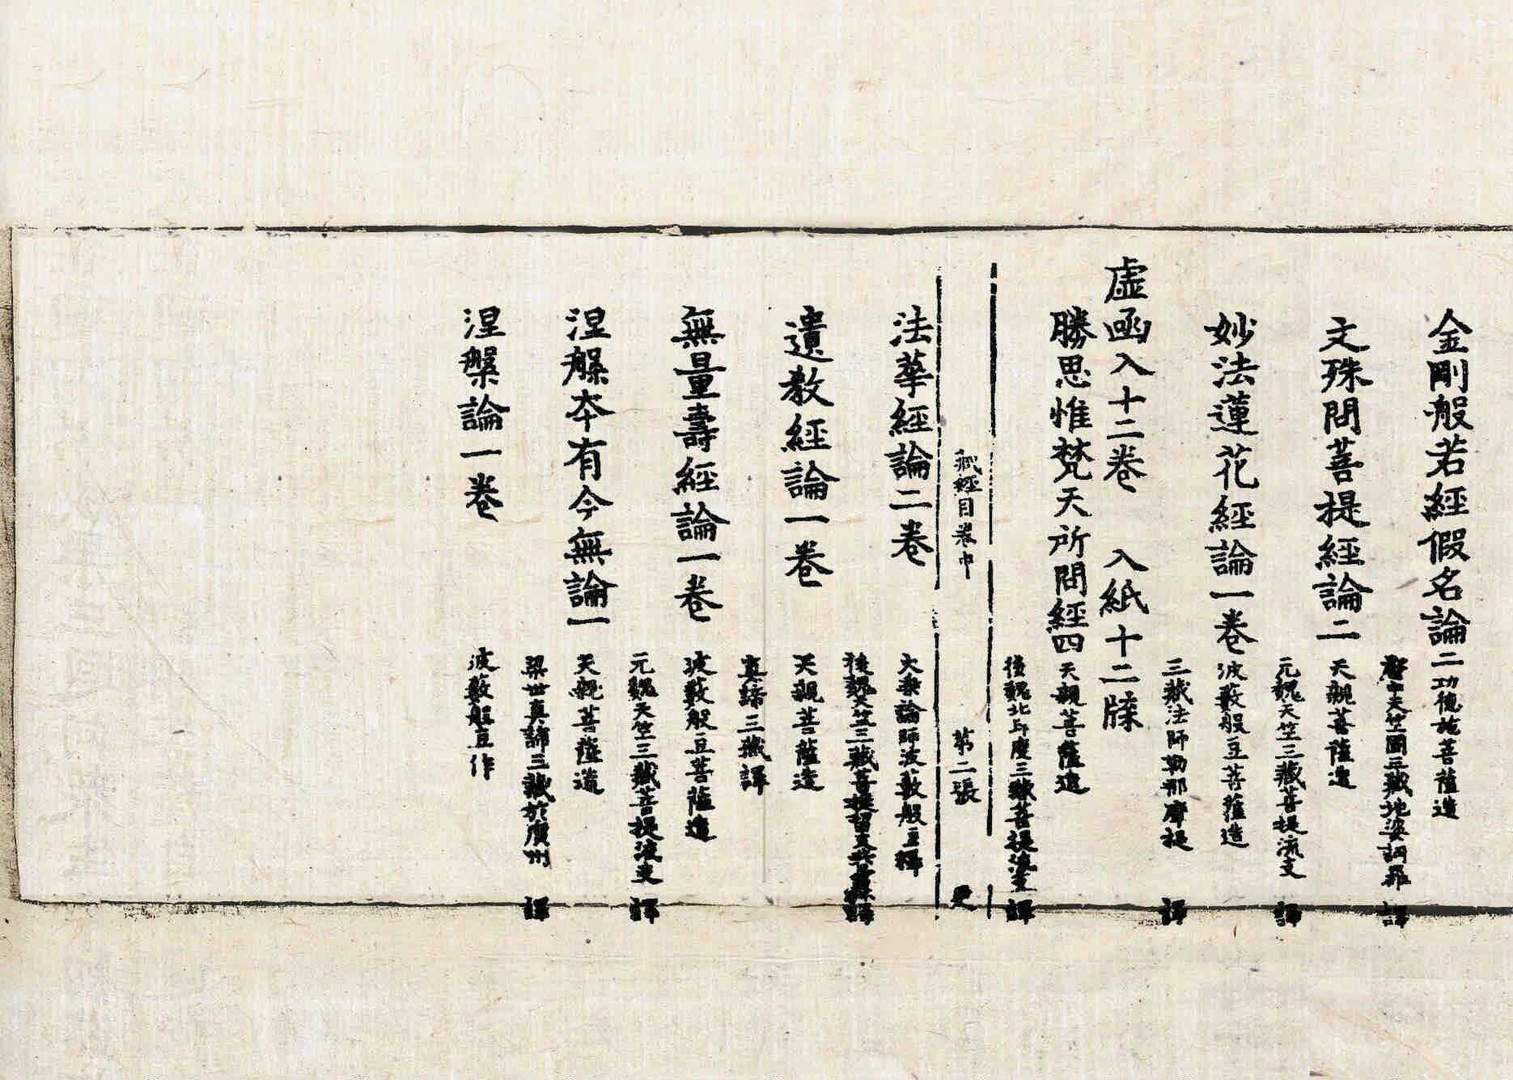 金剛般若經假名論二 功德施菩薩造
唐中天竺國三藏地婆訶羅 譯
文殊問菩提經論二 天親菩薩造
元魏天竺三藏菩提流支 譯
妙法蓮花經論一卷 波藪般豆菩薩造
三藏法師勒那摩提 譯
虛函入十二卷 入紙十二牒
勝思惟梵天所問經四 天親菩薩造
後魏北印度三藏菩提流支 譯
藏經目卷中 第二張 更
法華經論二卷 大乘論師波藪般豆釋
後魏天竺三藏菩提留支共曇林譯
遺教經論一卷 天親菩薩造
真諦三藏譯
無量壽經論一卷 波藪般豆菩薩造
元魏天竺三藏菩提流支 譯
涅槃本有今無論一 天親菩薩造
梁世真諦三藏於廣州 譯
涅槃論一卷 波藪槃豆作